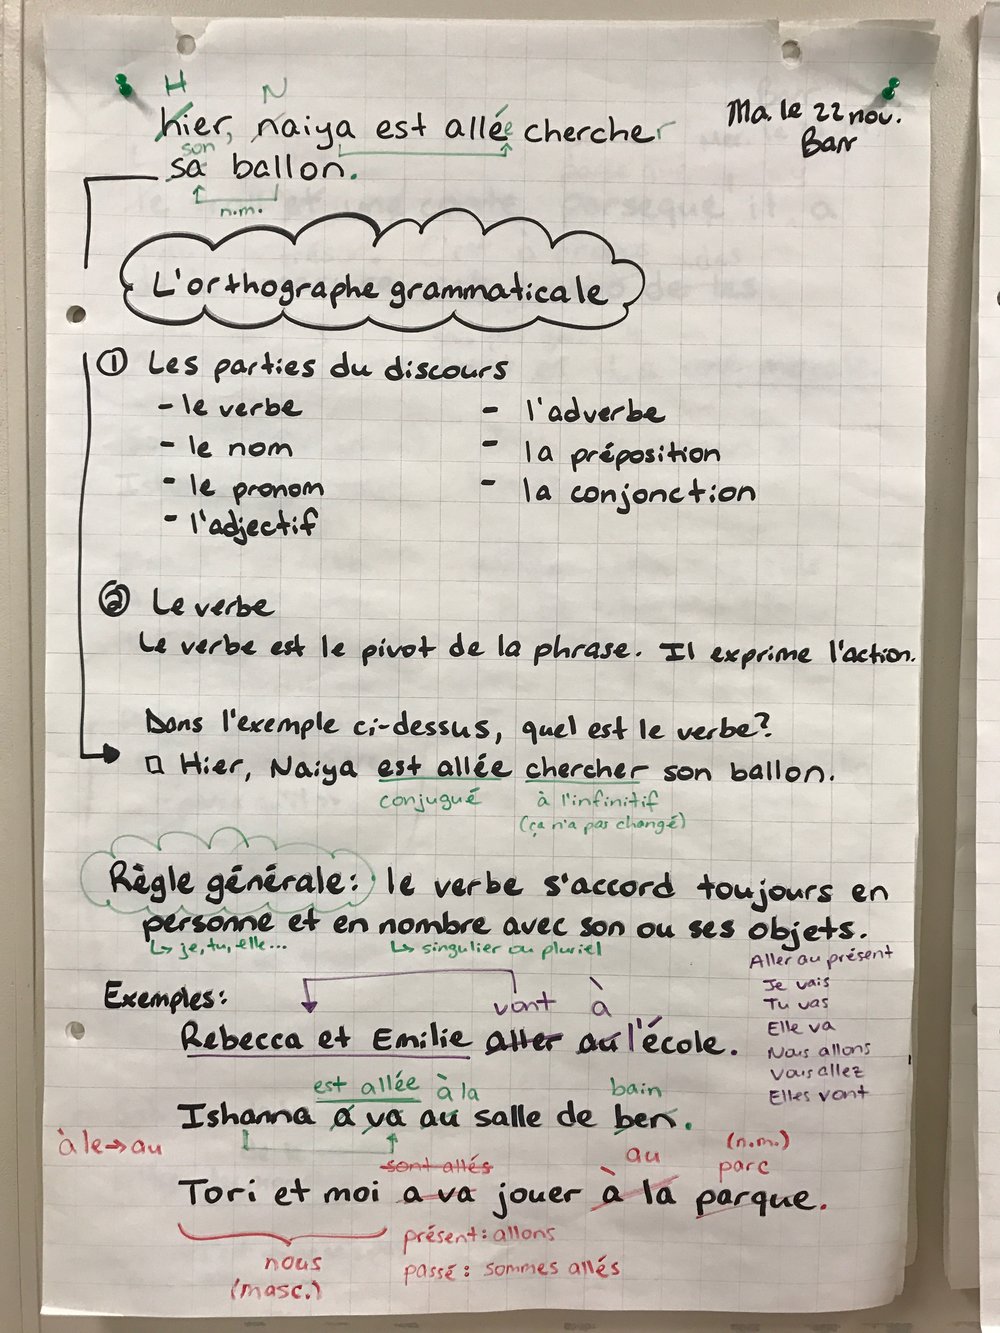 H N
hier, naiya est allée chercher
Ma. le 22 nov.
Barr
son
sa ballon.
n.m.
L'orthographe grammaticale
① Les parties du discours
- le verbe
- le nom
- le pronom
- l'adjectif
- l'adverbe
- la préposition
- la conjonction
② Le verbe
Le verbe est le pivot de la phrase. Il exprime l'action.
Dans l'exemple ci-dessus, quel est le verbe?
Hier, Naiya est allée chercher son ballon.
conjugué à l'infinitif
(ça n'a pas changé)
Règle générale: le verbe s'accord toujours en
personne et en nombre avec son ou ses objets.
↳ je, tu, elle... ↳ singulier ou pluriel
Aller au présent
Je vais
Tu vas
Elle va
Nous allons
Vous allez
Elles vont
Exemples:
vont à
Rebecca et Emilie aller au l'école.
est allée à la bain
Ishanna a va au salle de ben.
à le → au
sont allés au (n.m.)
parc
Tori et moi a va jouer à la parque.
nous
(masc.)
présent: allons
passé: sommes allés